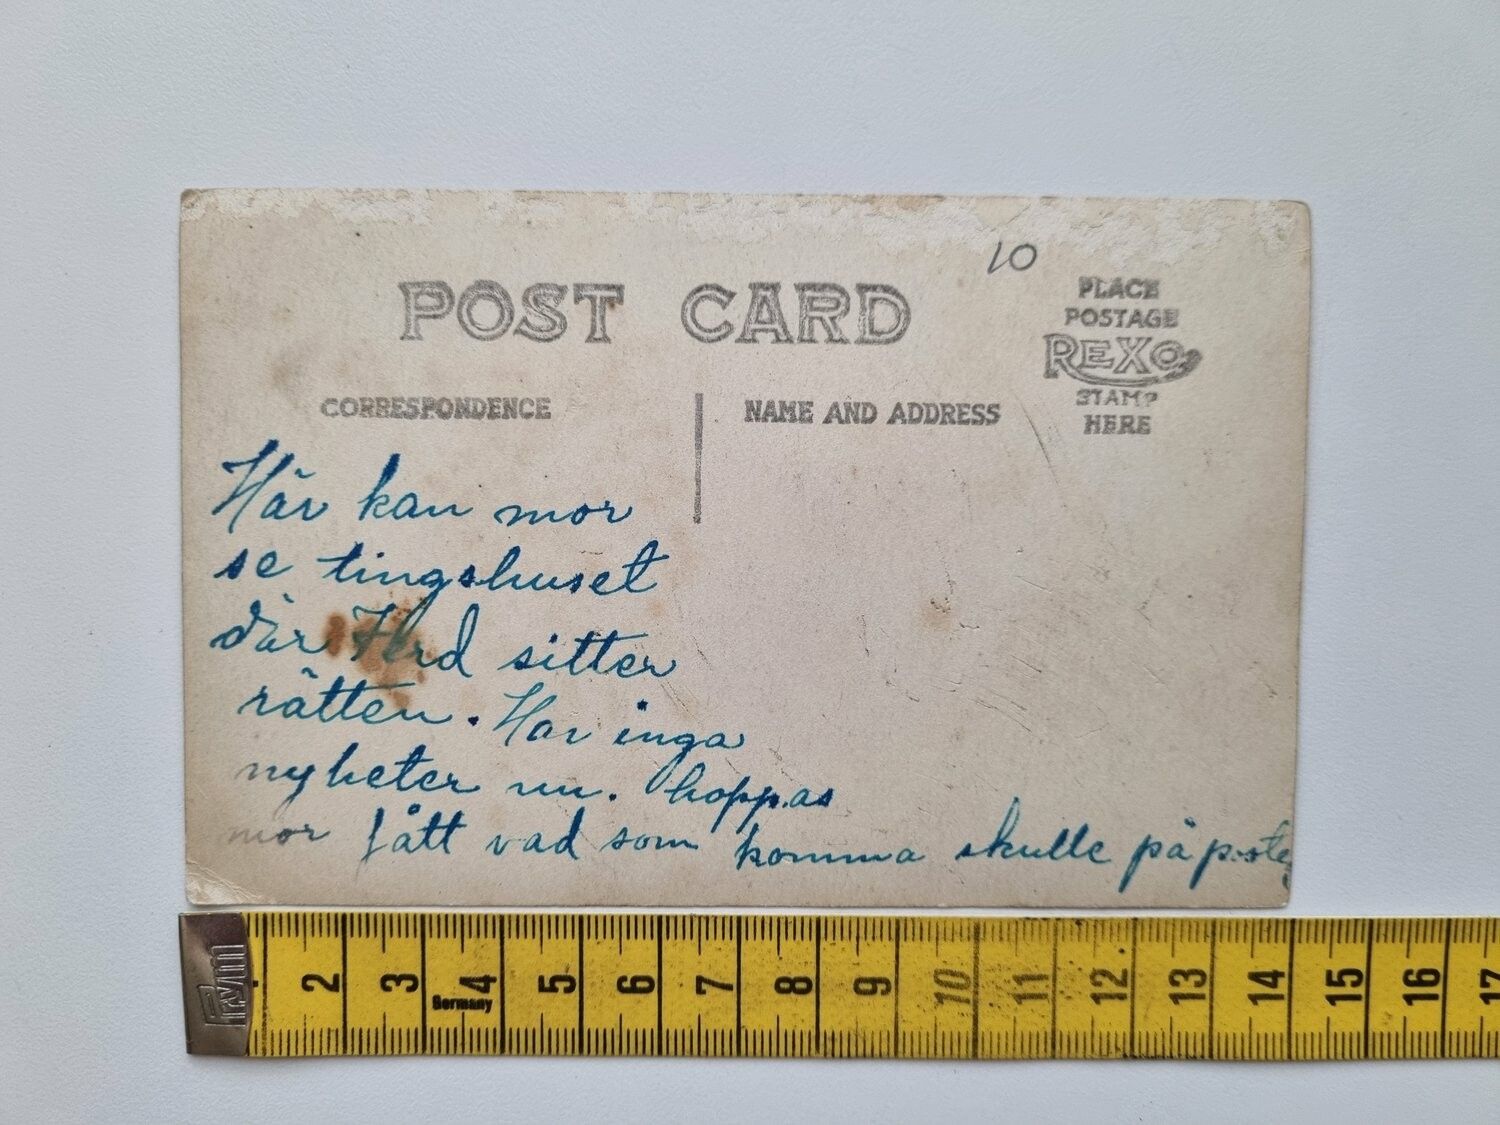 10
POST CARD
PLACE
POSTAGE
REXO
STAMP
HERE
CORRESPONDENCE
NAME AND ADDRESS
Här kan mor
se tingshuset
där Ferd sitter
rätten. Har inga
nyheter nu. hoppas
mor fått vad som komma skulle på posten
Prym
2 3 4 5 6 7 8 9 10 11 12 13 14 15 16 17
Germany